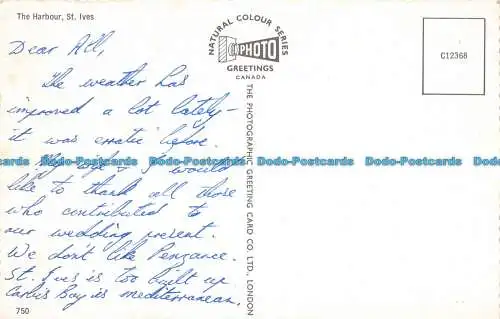 The Harbour, St. Ives
Dear All,
The weather has
improved a lot lately –
it was erratic before.
My wife & I would
like to thank all those
who contributed to
our wedding present.
We don't like Penzance.
St. Ives is too built up
Carbis Bay is mediterranean.
750
NATURAL COLOUR SERIES
PHOTO
GREETINGS
CANADA
THE PHOTOGRAPHIC GREETING CARD CO. LTD., LONDON
C12368
Dodo-Postcards Dodo-Postcards Dodo-Postcards Dodo-Postcards Dodo-Postcards